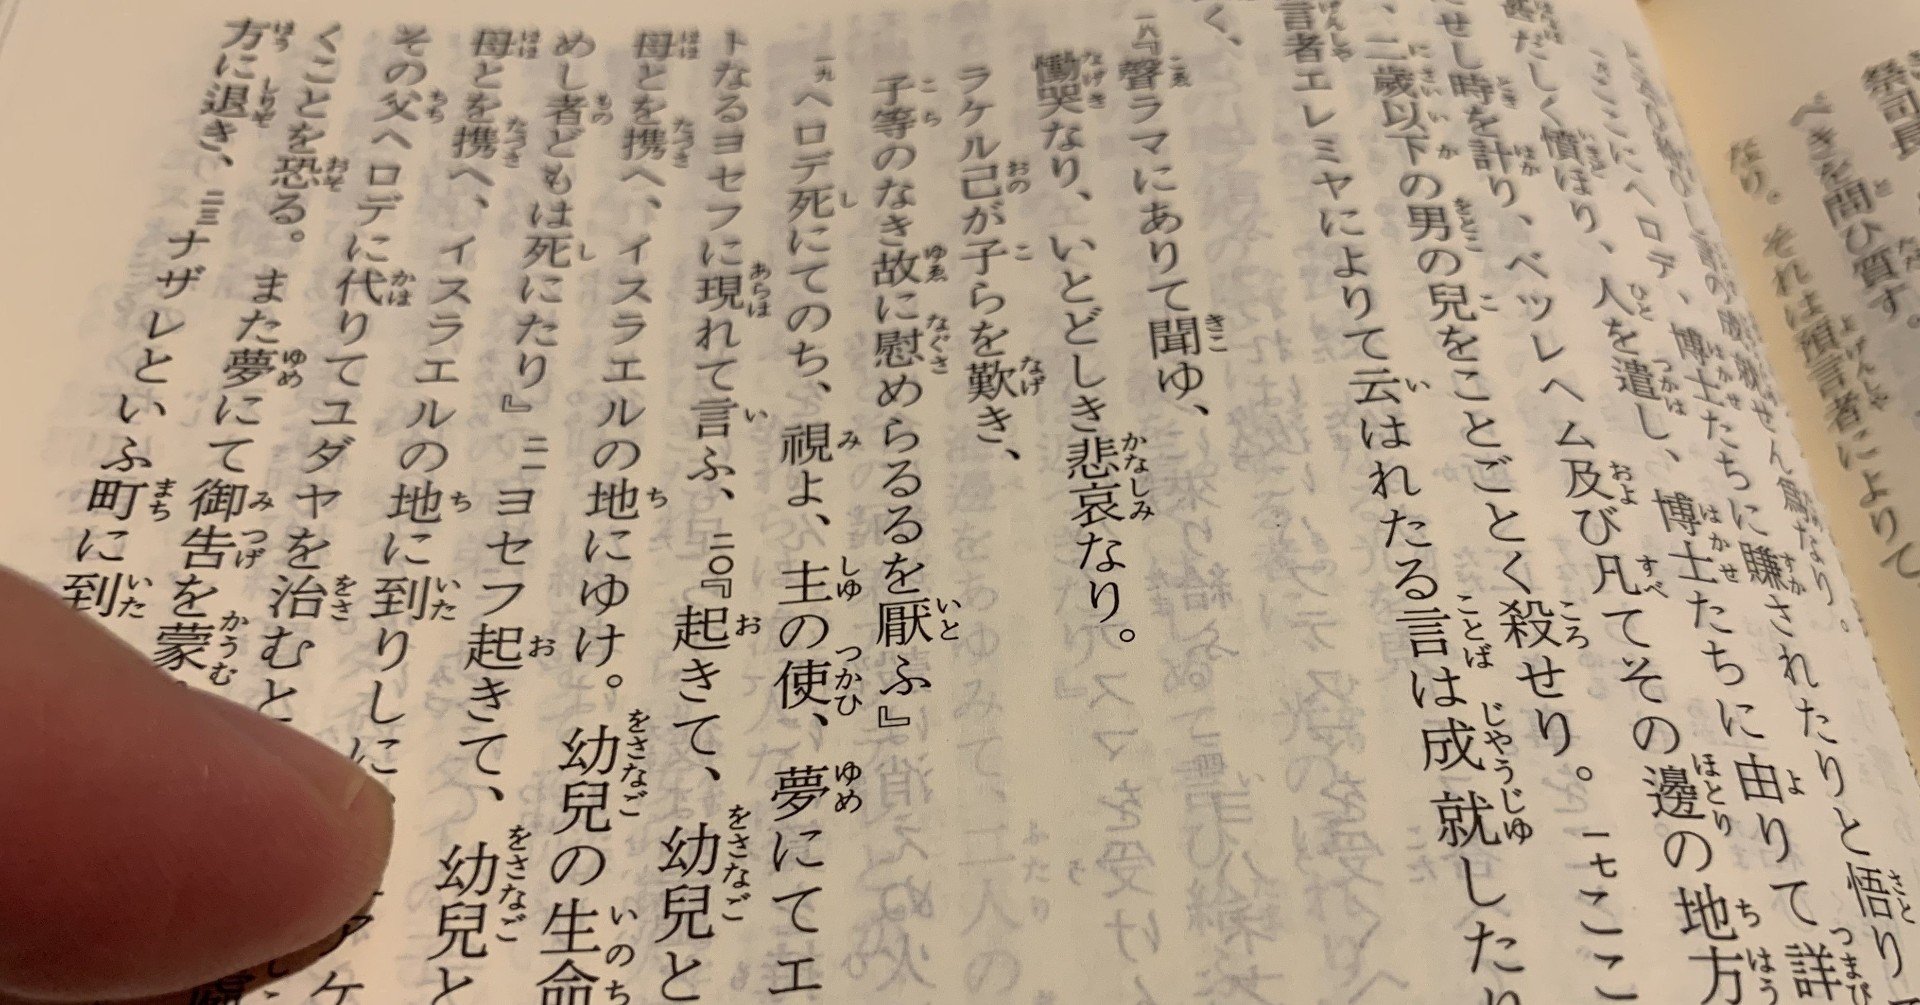 祭司長
べきを問ひ質す。
なり。それは預言者によりて
せん爲なり。
ここにヘロデ、博士たちに賺されたりと悟り
だしく憤ほり、人を遣し、博士たちに由りて詳
せし時を計り、ベツレヘム及び凡てその邊の地方
、二歳以下の男の兒をことごとく殺せり。一七ここ
言者エレミヤによりて云はれたる言は成就したり
く、
一八『聲ラマにありて聞ゆ、
慟哭なり、いとどしき悲哀なり。
ラケル己が子らを歎き、
子等のなき故に慰めらるるを厭ふ』
一九ヘロデ死にてのち、視よ、主の使、夢にてエ
トなるヨセフに現れて言ふ、二〇『起きて、幼兒と
母とを携へ、イスラエルの地にゆけ。幼兒の生命
めし者どもは死にたり』二一ヨセフ起きて、幼兒と
母とを携へ、イスラエルの地に到りしに アケ
その父ヘロデに代りてユダヤを治むと
くことを恐る。また夢にて御告を蒙
方に退き、二三ナザレといふ町に到